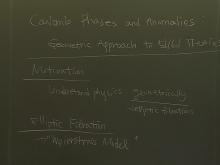 Coulomb Phases and Anomalies:
Geometric Approach to 5d/6d
Motivation
Understand physics geometrically
elliptic fibrations
Elliptic Fibration
"Weierstrass Model"